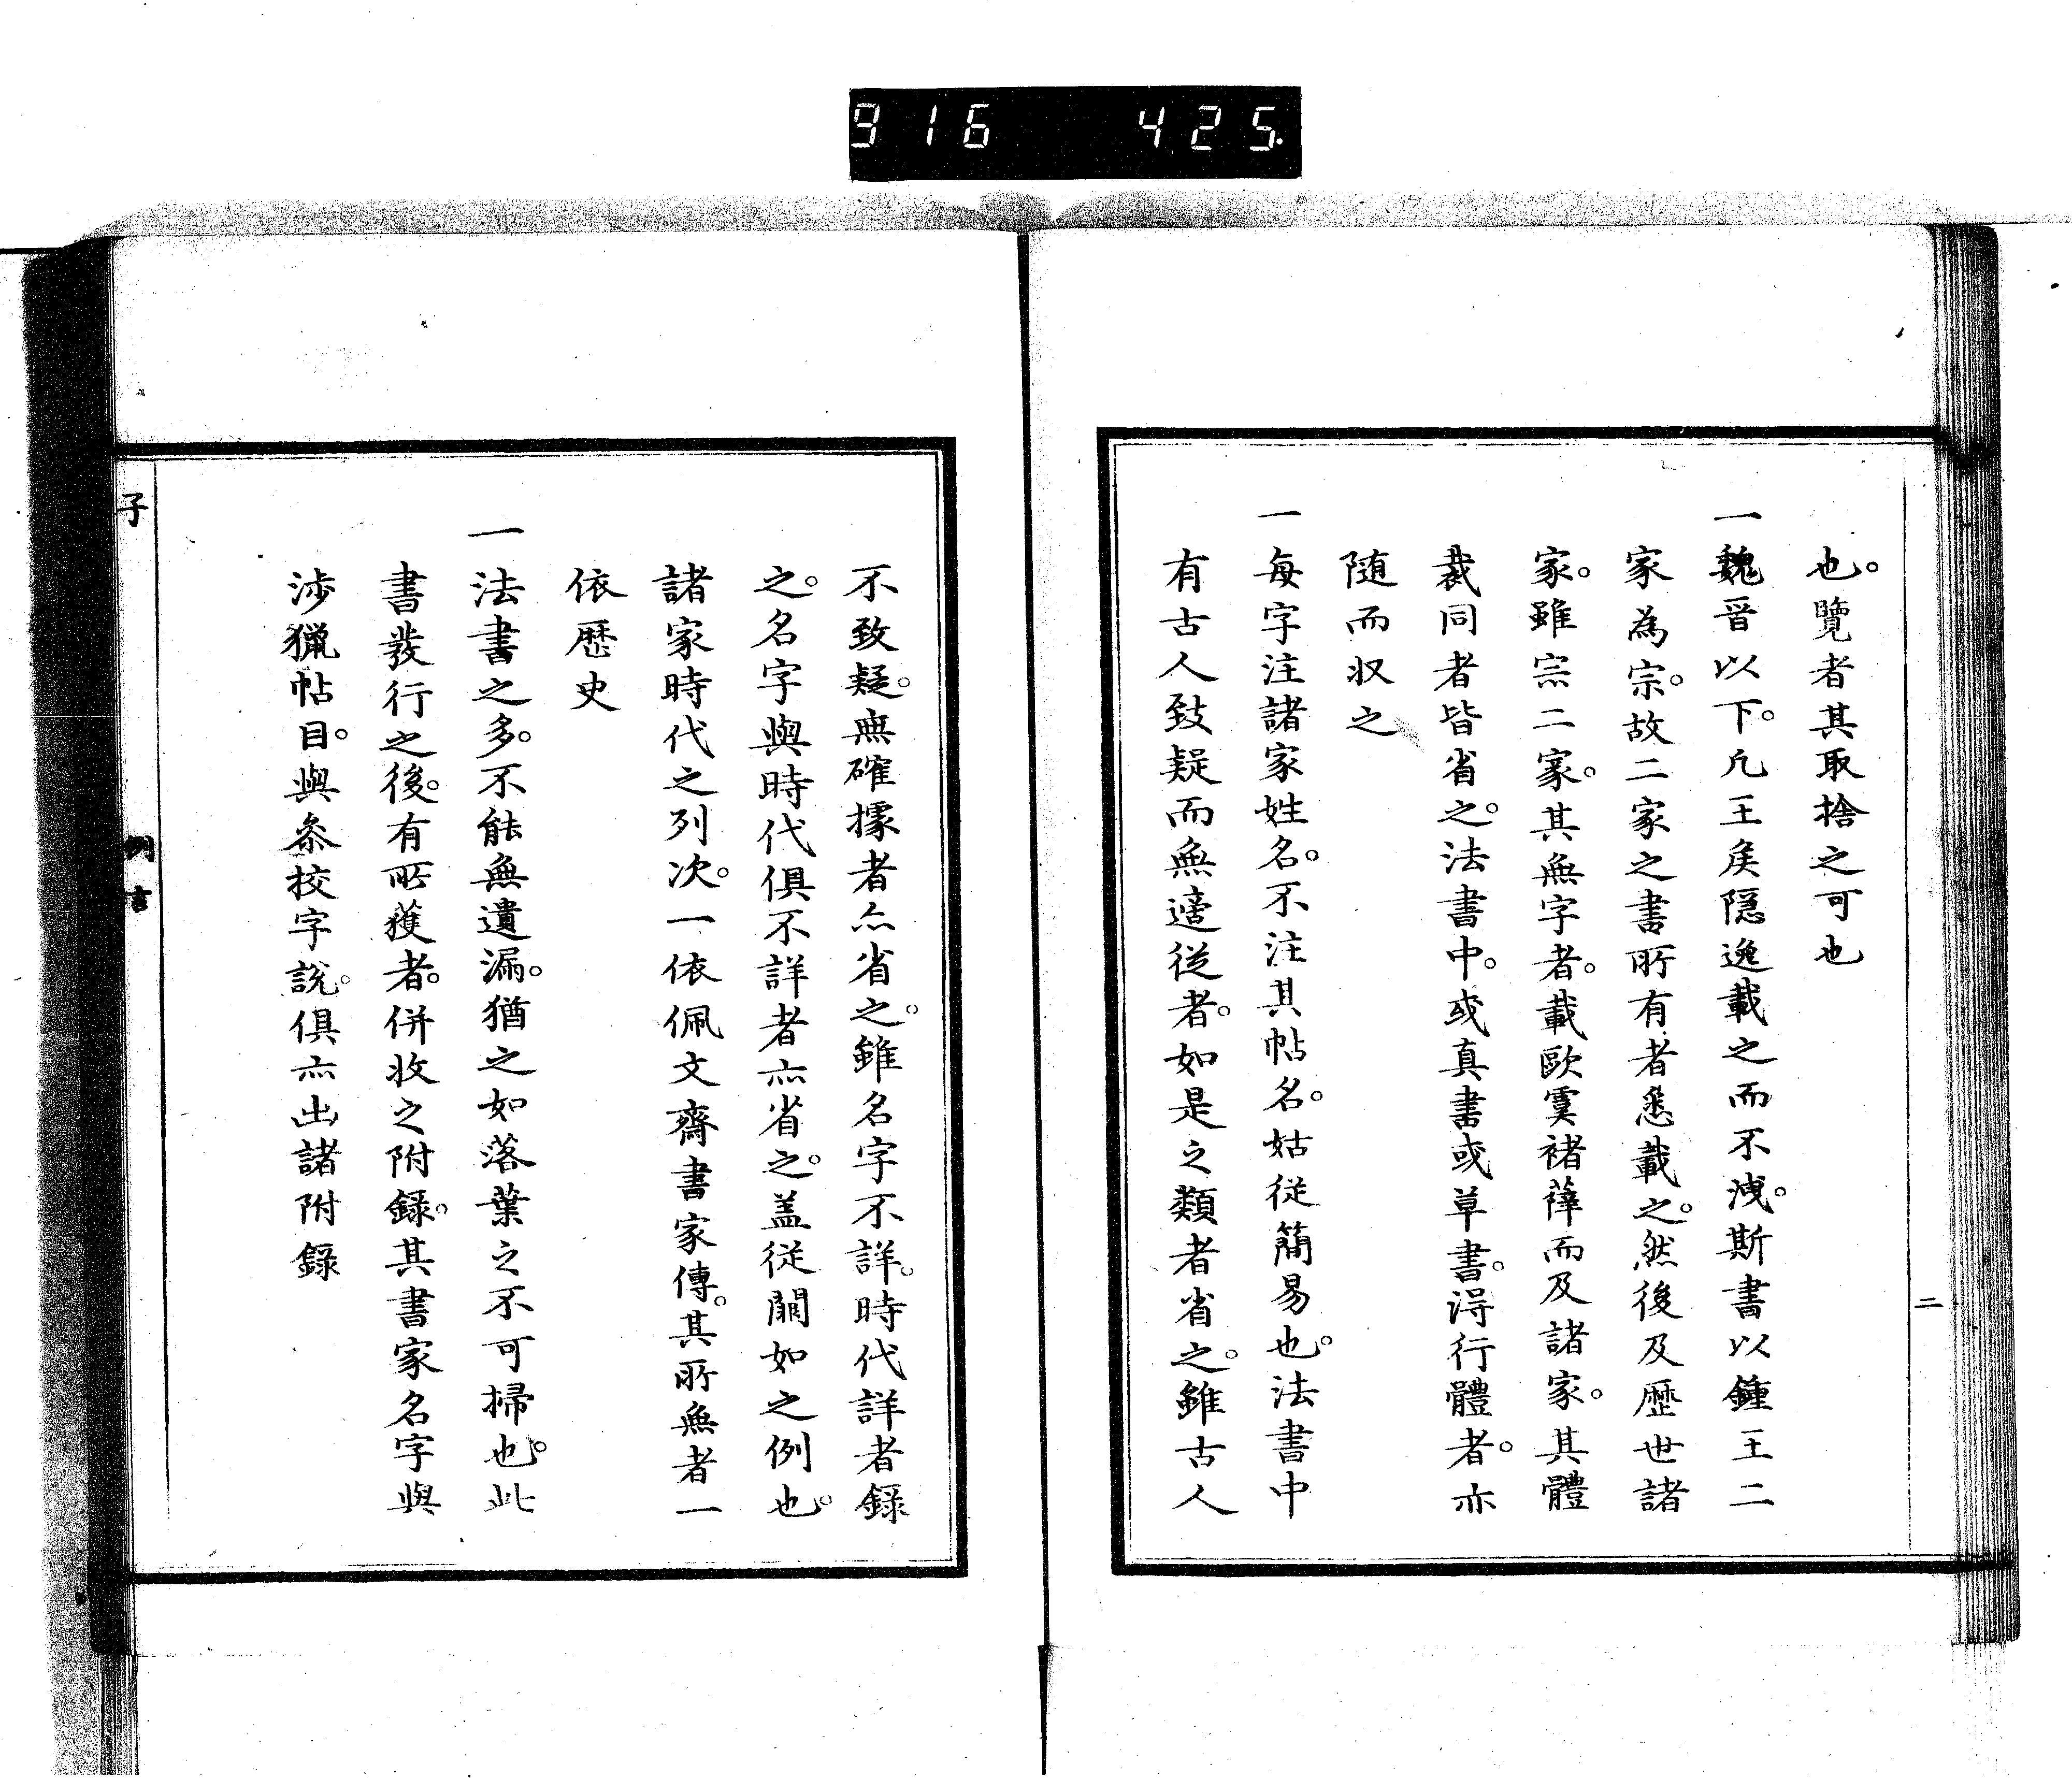 916 425.
二
也。覽者其取捨之可也
一魏晉以下。凡王矦隠逸載之而不洩。斯書以鍾王二
家為宗。故二家之書所有者悉載之。然後及歷世諸
家。雖宗二家。其無字者。載歐虞褚薛而及諸家。其體
裁同者皆省之。法書中。或真書或草書。得行體者。亦
随而収之
一每字注諸家姓名。不注其帖名。姑從簡易也。法書中
有古人致疑而無適從者。如是之類者省之。雖古人
不致疑。無確據者亦省之。雖名字不詳。時代詳者録
之。名字與時代俱不詳者亦省之。盖從闕如之例也。
諸家時代之列次。一依佩文齋書家傳。其所無者一
依歷史
一法書之多。不能無遺漏。猶之如落葉之不可掃也。此
書發行之後。有所獲者。併收之附録。其書家名字與
涉獵帖目。與叅挍字說。俱亦出諸附録
子
例言